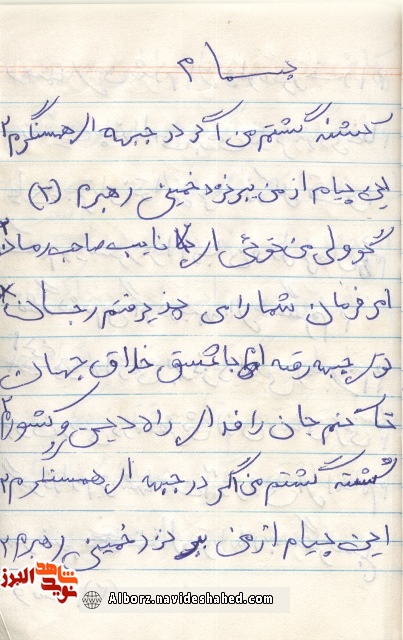 بسام م
کشته گشتم من اگر در جبهه ای همسنگرم ۲
این پیام از من ببر نزد خمینی رهبرم (۲)
گو ولی من توئی ای نایب صاحب زمان ۲
امر فرمان شما را می پذیرفتم ز جان ۲
در جبهه رفته با عشق خلاق جهان
تا کنم جان را فدای راه دین و کشورم ۲
کشته گشتم من اگر در جبهه ای همسنگرم ۲
این پیام از من ببر نزد خمینی رهبرم ۲
نوید شاهد البرز
Alborz.navideshahed.com